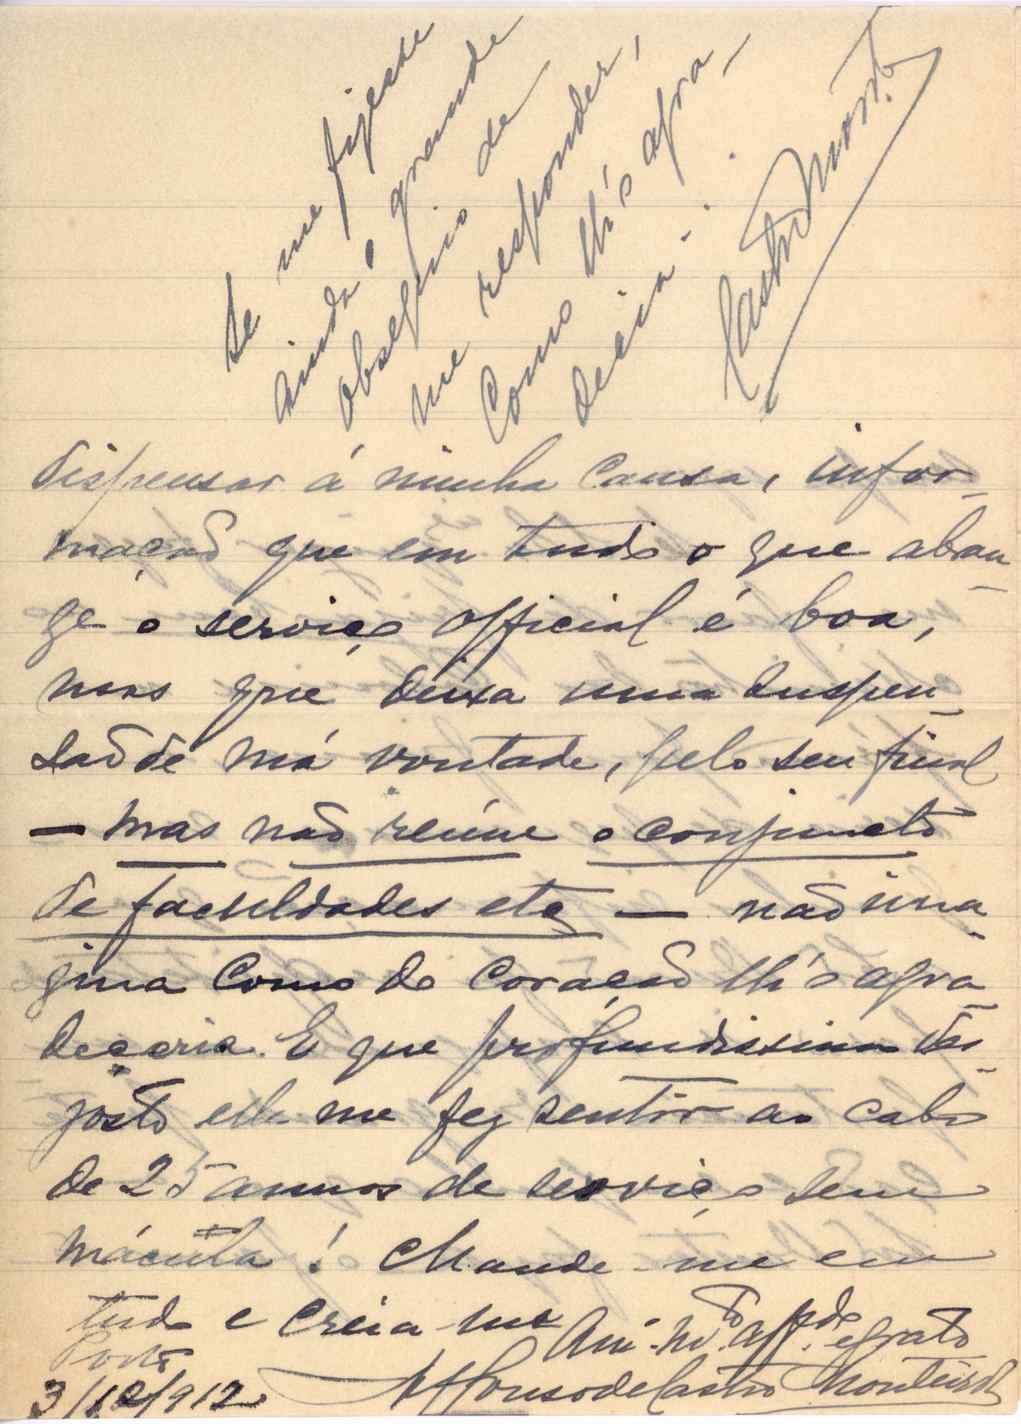 Se me fizesse
ainda o grande
obsequio de
me responder,
como lh'o agra-
decia.
Castro Mont.º
dispensar á minha causa, infor-
mação que em tudo o que abran-
ge o serviço official é boa,
mas que deixa uma suspen-
são de má vontade, pelo seu final
— mas não reúne o conjuncto
de faculdades etc — não ima-
gina como do coração lh'o agra-
deceria. E que profundissimo des-
gosto elle me fez sentir ao cabo
de 25 annos de serviço sem
mácula! Mande-me em
tudo e creia-me
Am.º m.to aff.do e grato
Porto
3/10/912
Affonso de Castro Monteiro